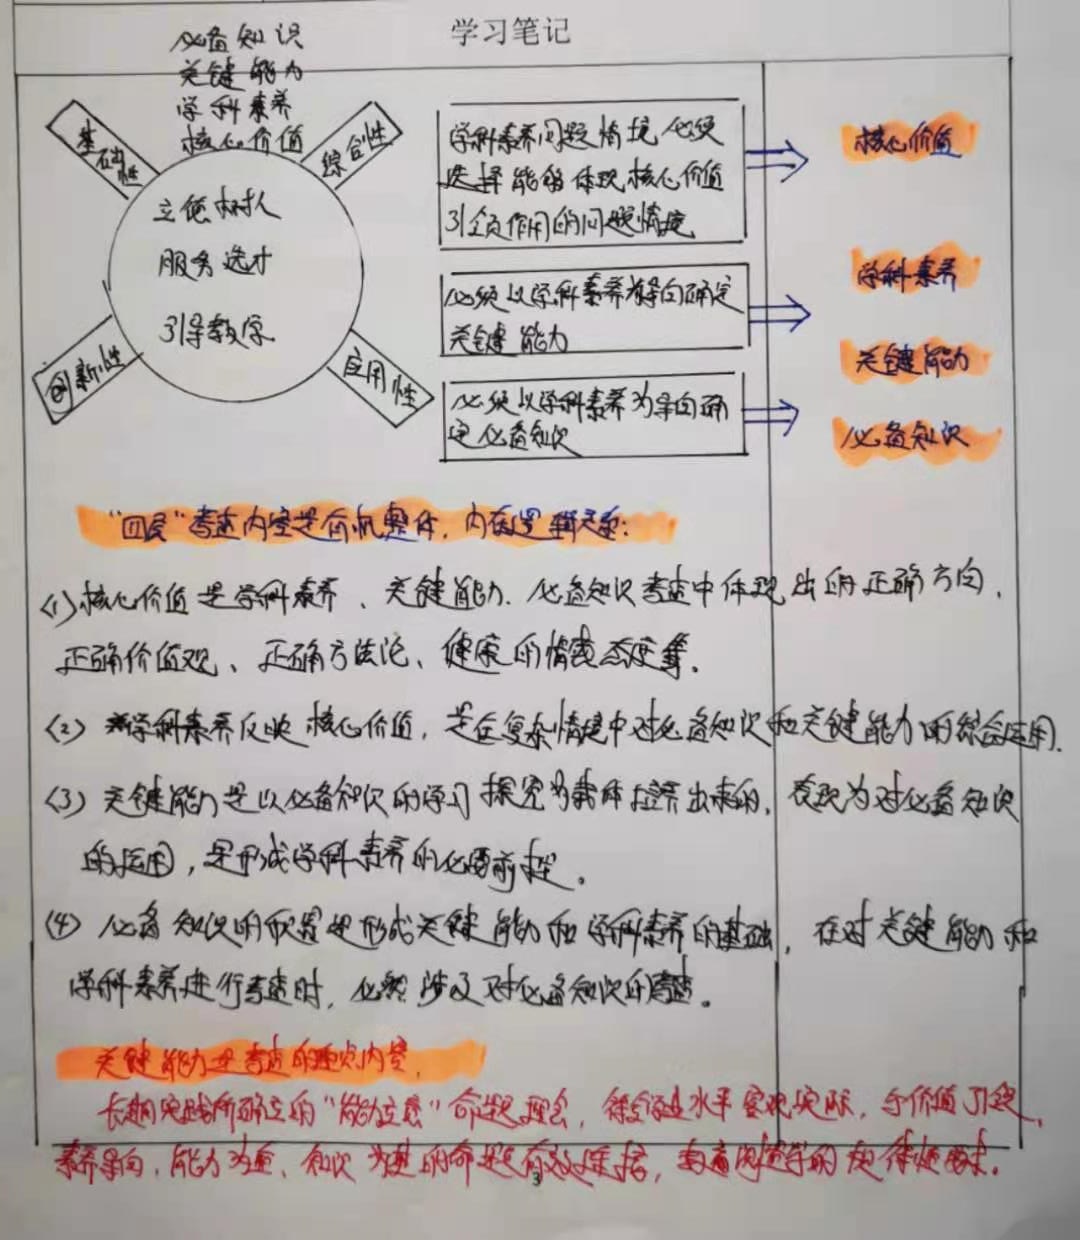 学习笔记
必备知识
关键能力
学科素养
核心价值
基础性
综合性
立德树人
服务选才
引导教学
创新性
应用性
学科素养问题情境,必须
选择能够体现核心价值
引领作用的问题情境
必须以学科素养为导向确定
关键能力
必须以学科素养为导向确
定必备知识
核心价值
学科素养
关键能力
必备知识
“四层”考查内容是有机整体,内在逻辑关系:
(1)核心价值是学科素养、关键能力、必备知识考查中体现出的正确方向、
正确价值观、正确方法论、健康的情感态度等。
(2)学科素养反映核心价值,是在复杂情境中对必备知识和关键能力的综合运用。
(3)关键能力是以必备知识的学习探究为载体培养出来的,表现为对必备知识
的运用,是形成学科素养的必要前提。
(4)必备知识的积累是形成关键能力和学科素养的基础,在对关键能力和
学科素养进行考查时,必然涉及对必备知识的考查。
关键能力是考查的重点内容。
长期实践所确立的“能力立意”命题理念,符合 水平客观实际,与价值引领、
素养导向、能力为重、知识为基的命题 的
3